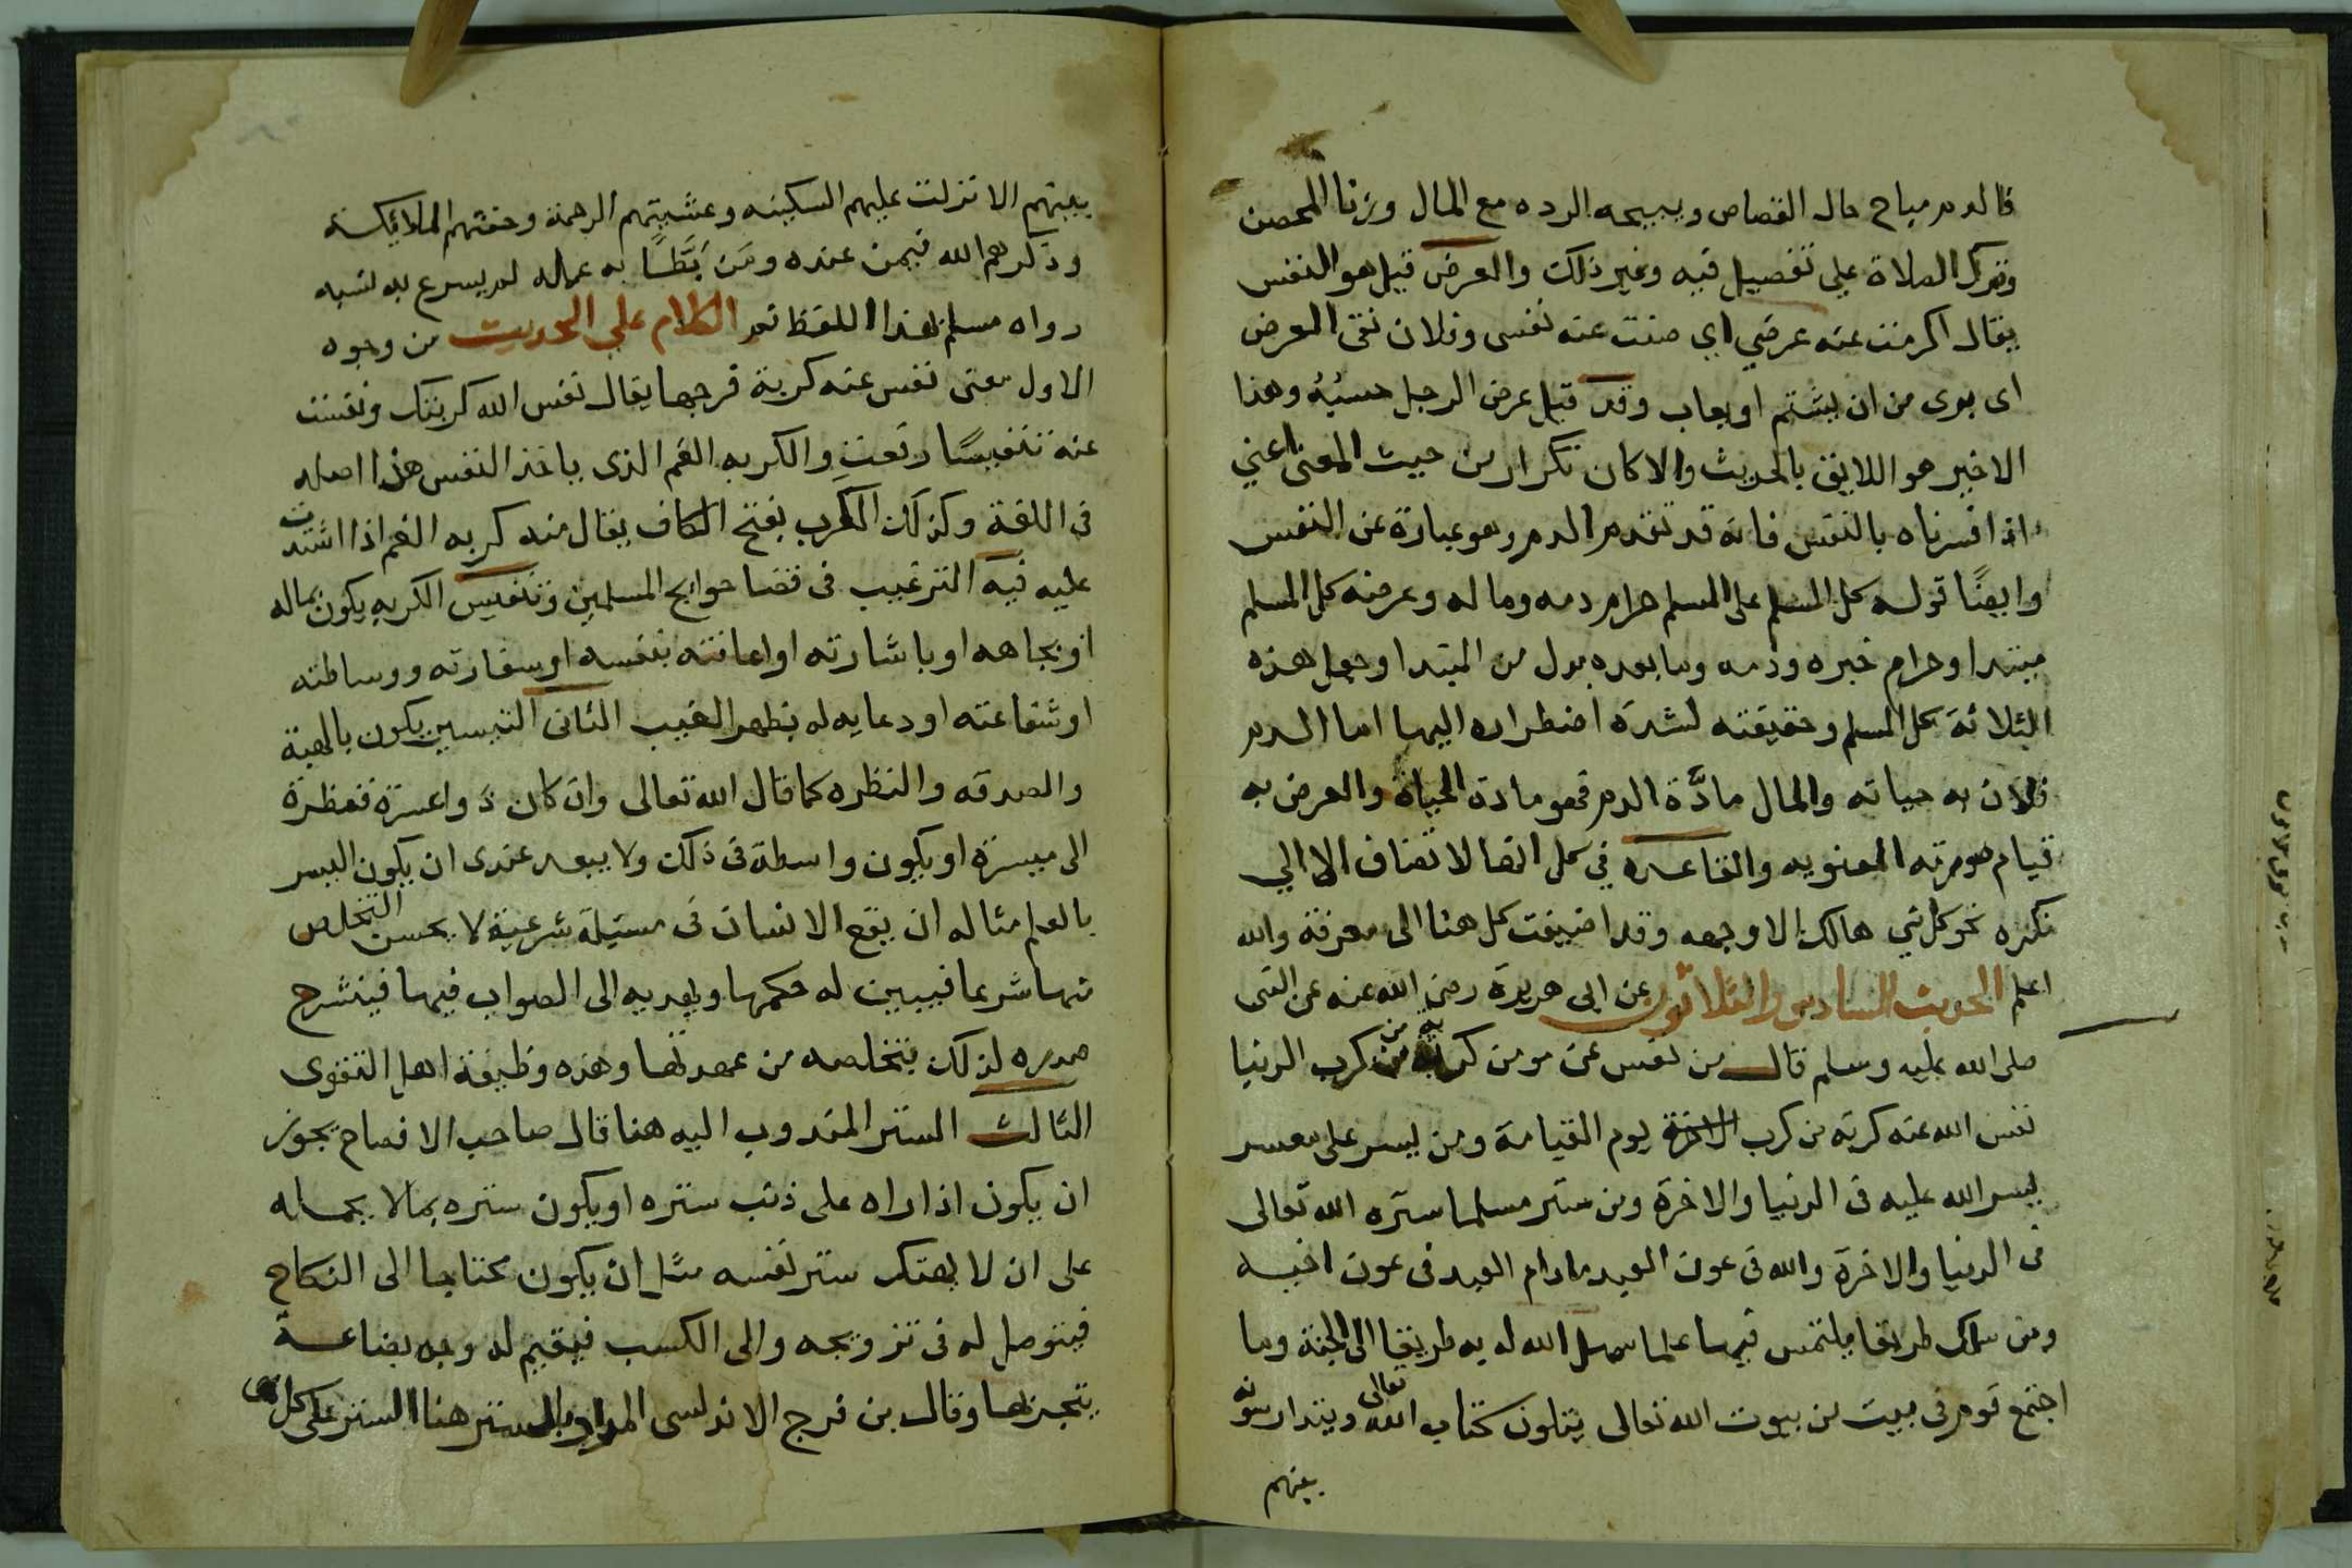 فالدم مباح حال القصاص ويبيحه الرده مع المال وزنا المحصن
وترك الصلاة علي تفصيل فيه وغير ذلك والعرض قيل هو النفس
يقال اكرمت عنه عرضي اي صنت عنه نفسى وفلان نقى العرض
اى برى من ان يشتم او يعاب وقد قيل عرض الرجل حسبه وهذا
الاخير هو اللايق بالحديث والا كان تكرار من حيث المعنى اعني
اذا فسرناه بالنفس فانه قد تقدم الدم وهو عبارة عن النفس
وايضًا قوله كل المسلم على المسلم حرام دمه وماله وعرضه كل المسلم
مبتدا وحرام خبره ودمه وما بعده بدل من المبتدا وجعل هذه
الثلاثة كل المسلم وحقيقته لشدة اضطراره اليها اما الدم
فلان به حياته والمال مادَّة الدم فهو مادة الحياة والعرض به
قيام صورته المعنويه والقاعده في كل انها لا تضاف الا الي
نكره نحو كل شي هالك الا وجهه وقد اضيفت كل هنا الى معرفة والله
اعلم الحديث السادس والثلاثون عن ابى هريرة رضى الله عنه عن النبى
صلى الله عليه وسلم قال من نفس عن مومن كربة من كرب الدنيا
نفس الله عنه كربة من كرب الاخرة يوم القيامة ومن يسر على معسر
يسر الله عليه فى الدنيا والاخرة ومن ستر مسلما ستره الله تعالى
فى الدنيا والاخرة والله فى عون العبد مادام العبد فى عون اخيه
ومن سلك طريقا يلتمس فيها علما سهل الله له به طريقا الى الجنة وما
اجتمع قوم فى بيت من بيوت الله تعالى يتلون كتاب الله تعالى ويتدارسونه
بينهم
بينهم الا نزلت عليهم السكينه وغشيتهم الرحمة وحفتهم الملائيكة
وذكرهم الله فيمن عنده ومَن بَطَّأ به عمله لم يسرع به نسبه
رواه مسلم بهذا اللفظ نعم الكلام علي الحديث من وجوه
الاول معنى نفس عنه كربة فرجها يقال نفس الله كربتك ونفست
عنه تنفيسًا رفعت والكربه الغم الذى ياخذ النفس هذا اصله
فى اللغة وكذلك الكرب بفتح الكاف يقال منه كربه الغم اذا اشتد
عليه فيه الترغيب فى قضا حوايج المسلمين وتنفيس الكربه يكون بماله
او بجاهه او باشارته او اعانته بنفسه او سفارته ووساطته
او شفاعته او دعايه له بظهر الغيب الثانى التيسير يكون بالهبة
والصدقه والنظره كما قال الله تعالى وان كان ذو اعسرة فنظرة
الى ميسرة او يكون واسطة فى ذلك ولا يبعد عندى ان يكون اليسر
بالعلم مثاله ان يقع الانسان فى مسيلة شرعية لا يحسن التخلص
منها شرعا فيبين له حكمها ويهديه الى الصواب فيها فينشرح
صدره لذلك بتخلصه من عهدتها وهذه وظيفة اهل التقوى
الثالث الستر المندوب اليه هنا قال صاحب الافصاح يجوز
ان يكون اذا راه على ذنب ستره او يكون ستره بمالا يحمله
على ان لا يهتك ستر نفسه مثل ان يكون محتاجا الى النكاح
فيتوصل له فى تزويجه والى الكسب فيقيم له وجه بضاعة
يتجر بها وقال بن فرج الاندلسى المراد بالستر هنا الستر على كل